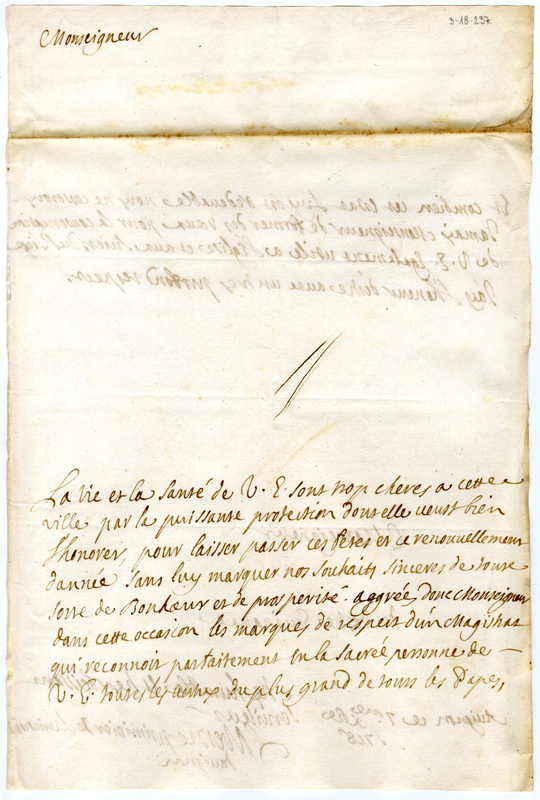 3-18-237
Monseigneur
La vie et la santé de V. E. sont trop cheres a cette
ville par la puissante protection dont elle veust bien
l'honorer, pour laisser passer ces fêtes et ce renouvellement
dannée sans luy marquer nos souhaits sinceres de toute
sorte de Bonheur et de prosperité. aggreés donc Monseigneur
dans cette occasion les marques de respect d'un Magistrat
qui reconnoit parfaitement en la sacrée personne de —
V. E. toutes les vertus du plus grand de tous les Papes,